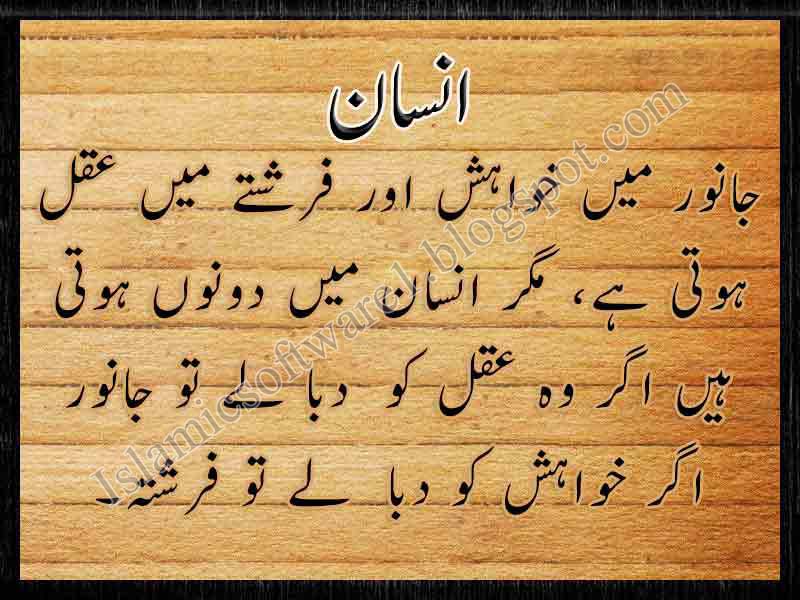 انسان
جانور میں خواہش اور فرشتے میں عقل
ہوتی ہے، مگر انسان میں دونوں ہوتی
ہیں اگر وہ عقل کو دبا لے تو جانور
اگر خواہش کو دبا لے تو فرشتہ۔
Islamicsoftwarel.blogspot.com